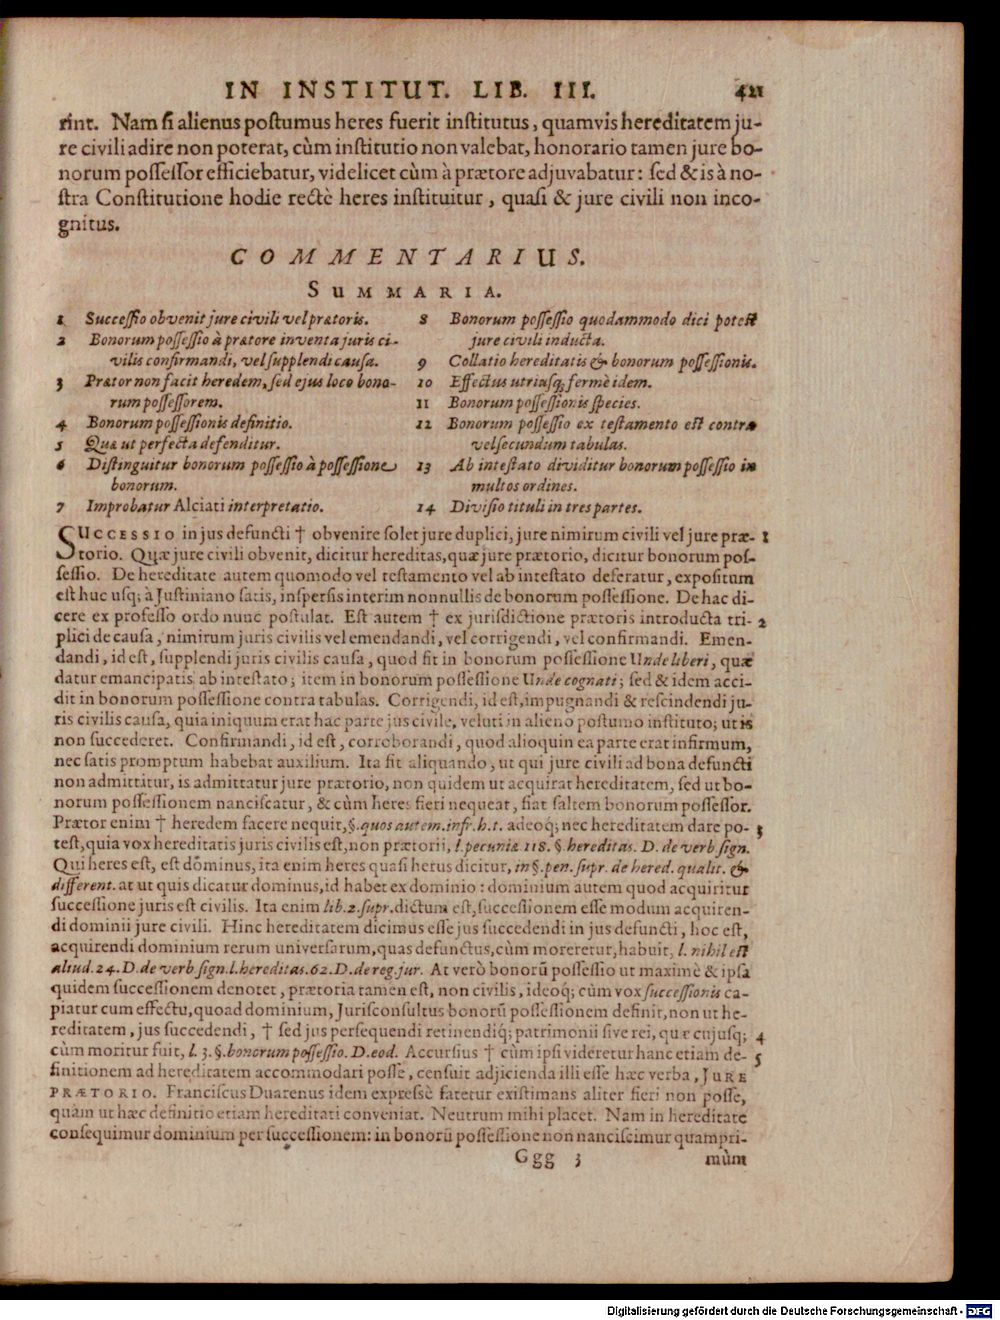 IN INSTITUT. LIB. III. 421
rint. Nam si alienus postumus heres fuerit institutus, quamvis hereditatem ju-
re civili adire non poterat, cùm institutio non valebat, honorario tamen jure bo-
norum possessor efficiebatur, videlicet cùm à prætore adjuvabatur: sed & is à no-
stra Constitutione hodie rectè heres instituitur, quasi & jure civili non inco-
gnitus.
COMMENTARIUS.
SUMMARIA.
1 Successio obvenit jure civili vel prætoris.
2 Bonorum possessio à prætore inventa juris ci-
vilis confirmandi, vel supplendi causa.
3 Prætor non facit heredem, sed ejus loco bono-
rum possessorem.
4 Bonorum possessionis definitio.
5 Quæ ut perfecta defenditur.
6 Distinguitur bonorum possessio à possessione
bonorum.
7 Improbatur Alciati interpretatio.
8 Bonorum possessio quodammodo dici potest
jure civili inducta.
9 Collatio hereditatis & bonorum possessionis.
10 Effectus utriusq; fermè idem.
11 Bonorum possessionis species.
12 Bonorum possessio ex testamento est contra
vel secundum tabulas.
13 Ab intestato dividitur bonorum possessio in
multos ordines.
14 Divisio tituli in tres partes.
SUCCESSIO in jus defuncti † obvenire solet jure duplici, jure nimirum civili vel jure præ- 1
torio. Quæ jure civili obvenit, dicitur hereditas, quæ jure prætorio, dicitur bonorum pos-
sessio. De hereditate autem quomodo vel testamento vel ab intestato deferatur, expositum
est huc usq; à Justiniano satis, inspersis interim nonnullis de bonorum possessione. De hac di-
cere ex professo ordo nunc postulat. Est autem † ex jurisdictione prætoris introducta tri- 2
plici de causa, nimirum juris civilis vel emendandi, vel corrigendi, vel confirmandi. Emen-
dandi, id est, supplendi juris civilis causa, quod fit in bonorum possessione Unde liberi, quæ
datur emancipatis ab intestato; item in bonorum possessione Unde cognati; sed & idem acci-
dit in bonorum possessione contra tabulas. Corrigendi, id est, impugnandi & rescindendi ju-
ris civilis causa, quia iniquum erat hac parte jus civile, veluti in alieno postumo instituto; ut is
non succederet. Confirmandi, id est, corroborandi, quod alioquin ea parte erat infirmum,
nec satis promptum habebat auxilium. Ita fit aliquando, ut qui jure civili ad bona defuncti
non admittitur, is admittatur jure prætorio, non quidem ut acquirat hereditatem, sed ut bo-
norum possessionem nanciscatur, & cùm heres fieri nequeat, fiat saltem bonorum possessor.
Prætor enim † heredem facere nequit, §. quos autem. infr. h. t. adeoq; nec hereditatem dare po- 3
test, quia vox hereditatis juris civilis est, non prætorii, l. pecuniæ 118. §. hereditas. D. de verb. sign.
Qui heres est, est dominus, ita enim heres quasi herus dicitur, in §. pen. supr. de hered. qualit. &
different. at ut quis dicatur dominus, id habet ex dominio: dominium autem quod acquiritur
successione juris est civilis. Ita enim lib. 2. supr. dictum est, successionem esse modum acquiren-
di dominii jure civili. Hinc hereditatem dicimus esse jus succedendi in jus defuncti, hoc est,
acquirendi dominium rerum universarum, quas defunctus, cùm moreretur, habuit, l. nihil est
aliud. 24. D. de verb. sign. l. hereditas. 62. D. de reg. jur. At verò bonorũ possessio ut maximè & ipsa
quidem successionem denotet, prætoria tamen est, non civilis, ideoq; cùm vox successionis ca-
piatur cum effectu, quoad dominium, Jurisconsultus bonorũ possessionem definit, non ut he-
reditatem, jus succedendi, † sed jus persequendi retinendiq; patrimonii sive rei, quæ cujusq; 4
cùm moritur fuit, l. 3. §. bonorum possessio. D. eod. Accursius † cùm ipsi videretur hanc etiam de- 5
finitionem ad hereditatem accommodari posse, censuit adjicienda illi esse hæc verba, JURE
PRÆTORIO. Franciscus Duarenus idem expressè fatetur existimans aliter fieri non posse,
quàm ut hæc definitio etiam hereditati conveniat. Neutrum mihi placet. Nam in hereditate
consequimur dominium per successionem: in bonorũ possessione non nanciscimur quampri-
Ggg 3 mùm
Digitalisierung gefördert durch die Deutsche Forschungsgemeinschaft - DFG